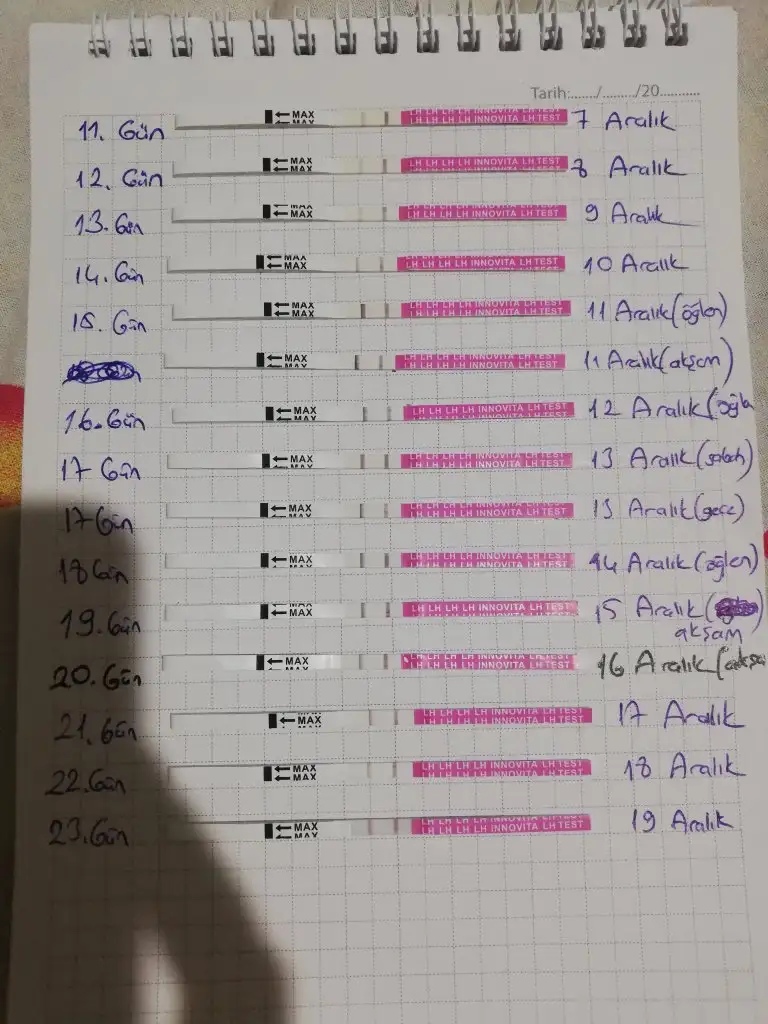 Tarih:....../......../20...........
11. Gün ←MAX LH LH LH LH INNOVITA LH TEST 7 Aralık
12. Gün ←MAX ←MAX LH LH LH LH INNOVITA LH TEST 8 Aralık
13. Gün ←MAX LH LH LH LH INNOVITA LH TEST 9 Aralık
14. Gün ←MAX LH LH LH LH INNOVITA LH TEST 10 Aralık
15. Gün ←MAX ←MAX LH LH LH LH INNOVITA LH TEST 11 Aralık (öğlen)
←MAX LH LH LH LH INNOVITA LH TEST 11 Aralık (akşam)
16. Gün ←MAX LH LH LH LH INNOVITA LH TEST 12 Aralık (öğle
17 Gün ←MAX LH LH LH LH INNOVITA LH TEST 13 Aralık (sabah)
17 Gün ←MAX LH LH LH LH INNOVITA LH TEST 13 Aralık (gece)
18 Gün ←MAX LH LH LH LH INNOVITA LH TEST 14 Aralık (öğlen)
19. Gün ←MAX LH LH LH LH INNOVITA LH TEST 15 Aralık ( )
akşam
20. Gün ←MAX LH LH LH LH INNOVITA LH TEST 16 Aralık (akşa
21. Gün ←MAX LH LH LH LH INNOVITA LH TEST 17 Aralık
22. Gün ←MAX ←MAX LH LH LH LH INNOVITA LH TEST 18 Aralık
23. Gün ←MAX LH LH LH LH INNOVITA LH TEST 19 Aralık